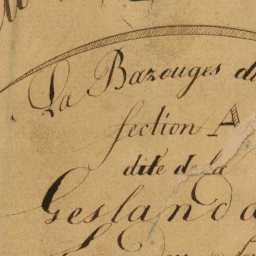 La Bazouges d
Section A
dite de la
Gesland